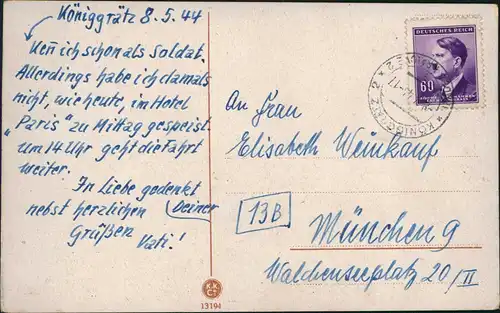 Königgrätz 8.5.44
Kenn ich schon als Soldat.
Allerdings habe ich damals
nicht, wie heute, im Hotel
„Paris" zu Mittag gespeist.
um 14 Uhr geht die Fahrt
weiter.
In Liebe gedenkt
Deiner
nebst herzlichen
Grüßen
Vati!
DEUTSCHES REICH
60
KÖNIGGRÄTZ 2
An Frau
Elisabeth Weinkauf
13B
München 9
Walchenseeplatz 20/II
13194